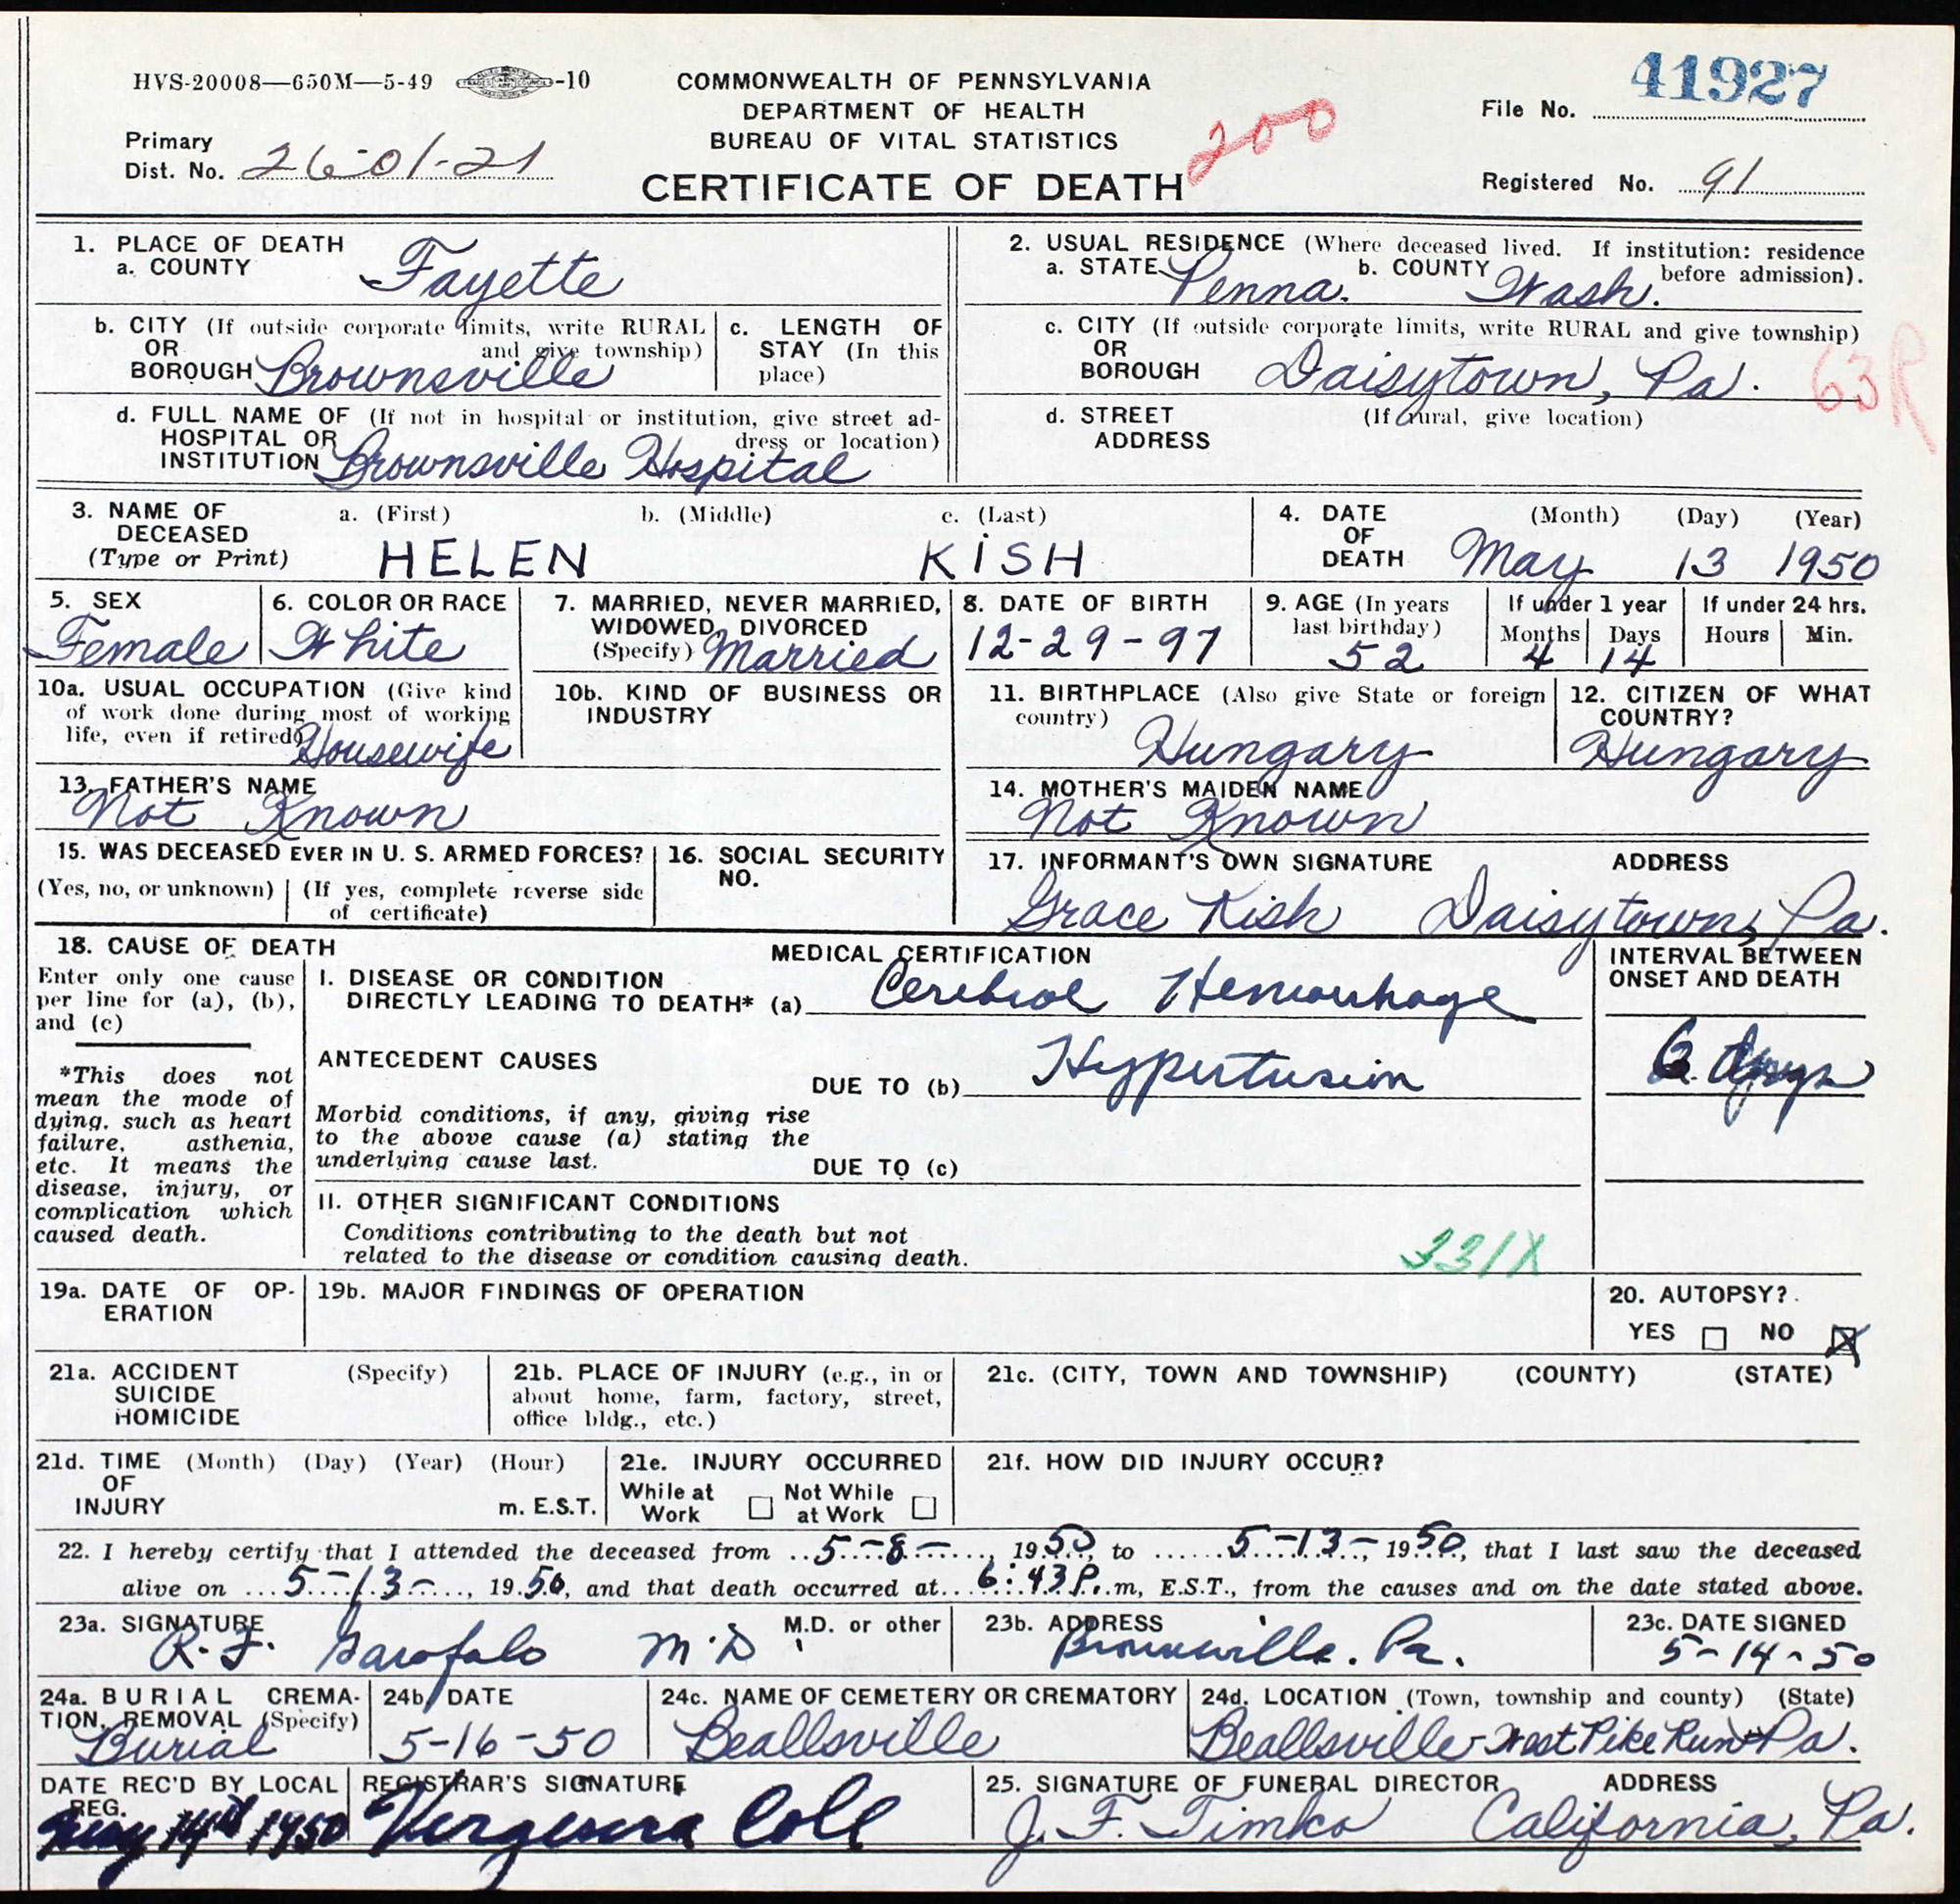 HVS-20008—650M—5-49 -10
COMMONWEALTH OF PENNSYLVANIA
DEPARTMENT OF HEALTH
BUREAU OF VITAL STATISTICS
CERTIFICATE OF DEATH
200
File No. 41927
Primary
Dist. No. 26-01-21
Registered No. 91
1. PLACE OF DEATH
a. COUNTY Fayette
b. CITY (If outside corporate limits, write RURAL
OR and give township)
BOROUGH Brownsville
c. LENGTH OF
STAY (In this
place)
d. FULL NAME OF (If not in hospital or institution, give street ad-
HOSPITAL OR dress or location)
INSTITUTION Brownsville Hospital
2. USUAL RESIDENCE (Where deceased lived. If institution: residence
before admission).
a. STATE Penna. b. COUNTY Wash.
c. CITY (If outside corporate limits, write RURAL and give township)
OR
BOROUGH Daisytown, Pa.
63R
d. STREET (If rural, give location)
ADDRESS
3. NAME OF a. (First) b. (Middle) c. (Last)
DECEASED
(Type or Print) HELEN KISH
4. DATE (Month) (Day) (Year)
OF
DEATH May 13 1950
5. SEX
Female
6. COLOR OR RACE
White
7. MARRIED, NEVER MARRIED,
WIDOWED, DIVORCED
(Specify) Married
8. DATE OF BIRTH
12-29-97
9. AGE (In years
last birthday)
52
If under 1 year
Months Days
4 14
If under 24 hrs.
Hours Min.
10a. USUAL OCCUPATION (Give kind
of work done during most of working
life, even if retired) Housewife
10b. KIND OF BUSINESS OR
INDUSTRY
11. BIRTHPLACE (Also give State or foreign
country)
Hungary
12. CITIZEN OF WHAT
COUNTRY?
Hungary
13. FATHER'S NAME
Not Known
14. MOTHER'S MAIDEN NAME
Not Known
15. WAS DECEASED EVER IN U. S. ARMED FORCES?
(Yes, no, or unknown) (If yes, complete reverse side
of certificate)
16. SOCIAL SECURITY
NO.
17. INFORMANT'S OWN SIGNATURE ADDRESS
Grace Kish Daisytown, Pa.
18. CAUSE OF DEATH
Enter only one cause
per line for (a), (b),
and (c)
*This does not
mean the mode of
dying, such as heart
failure, asthenia,
etc. It means the
disease, injury, or
complication which
caused death.
MEDICAL CERTIFICATION
I. DISEASE OR CONDITION
DIRECTLY LEADING TO DEATH* (a) Cerebral Hemorrhage
ANTECEDENT CAUSES
DUE TO (b) Hypertension
Morbid conditions, if any, giving rise
to the above cause (a) stating the
underlying cause last.
DUE TO (c)
II. OTHER SIGNIFICANT CONDITIONS
Conditions contributing to the death but not
related to the disease or condition causing death.
331X
INTERVAL BETWEEN
ONSET AND DEATH
19a. DATE OF OP-
ERATION
19b. MAJOR FINDINGS OF OPERATION
20. AUTOPSY?
YES NO X
21a. ACCIDENT (Specify)
SUICIDE
HOMICIDE
21b. PLACE OF INJURY (e.g., in or
about home, farm, factory, street,
office bldg., etc.)
21c. (CITY, TOWN AND TOWNSHIP) (COUNTY) (STATE)
21d. TIME (Month) (Day) (Year) (Hour)
OF
INJURY m. E.S.T.
21e. INJURY OCCURRED
While at Not While
Work at Work
21f. HOW DID INJURY OCCUR?
22. I hereby certify that I attended the deceased from 5-8-, 1950, to 5-13-, 1950, that I last saw the deceased
alive on 5-13-, 1950, and that death occurred at 6:43 P. m, E.S.T., from the causes and on the date stated above.
23a. SIGNATURE M.D. or other
R. F. Garofalo M.D
23b. ADDRESS
Brownsville. Pa.
23c. DATE SIGNED
5-14-50
24a. BURIAL CREMA-
TION, REMOVAL (Specify)
Burial
24b. DATE
5-16-50
24c. NAME OF CEMETERY OR CREMATORY
Beallsville
24d. LOCATION (Town, township and county) (State)
Beallsville-West Pike Run Pa.
DATE REC'D BY LOCAL
REG.
May 14th 1950
REGISTRAR'S SIGNATURE
Coll
25. SIGNATURE OF FUNERAL DIRECTOR ADDRESS
J. F. Timko California, Pa.